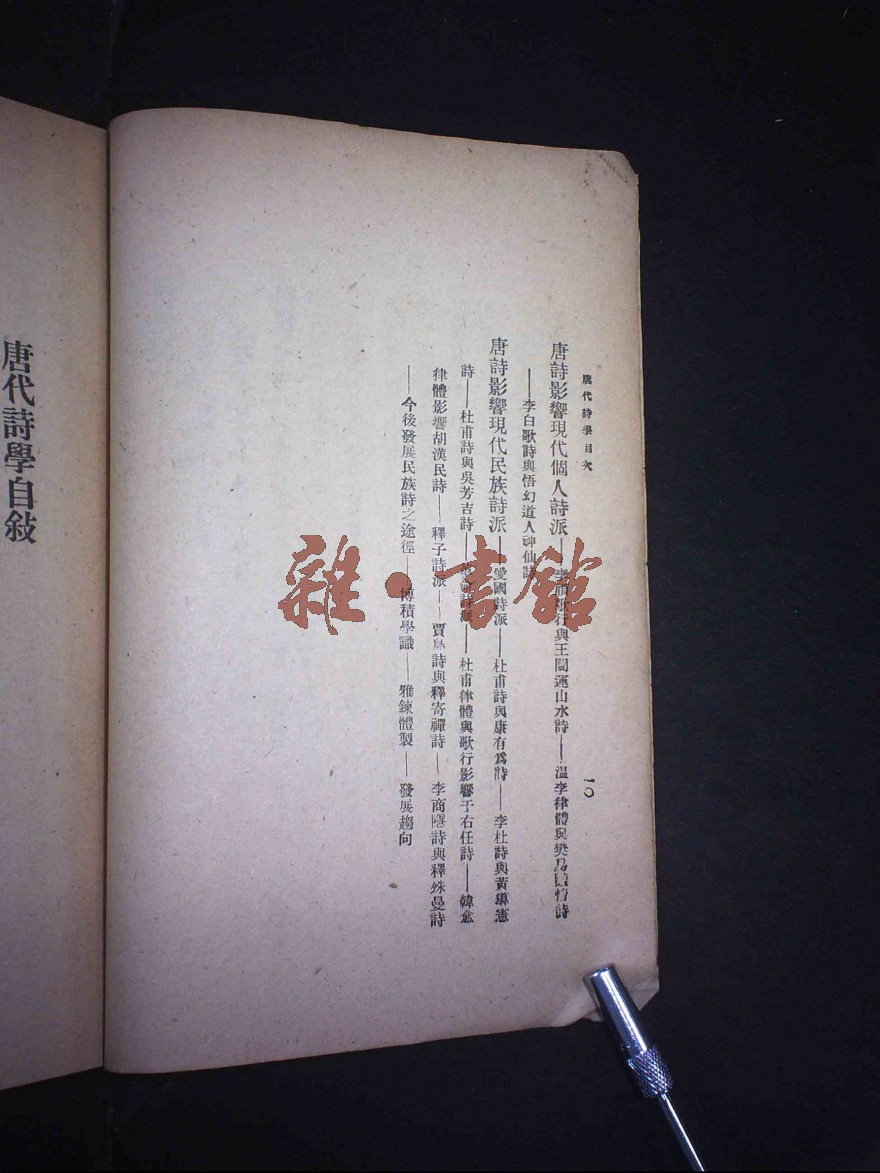 唐代詩學目次
一〇
唐詩影響現代個人詩派——李頎歌行與王闓運山水詩——溫李律體與樊易情詩
——李白歌詩與悟幻道人神仙詩
唐詩影響現代民族詩派——愛國詩派——杜甫詩與康有爲詩——李杜詩與黃遵憲
詩——杜甫詩與吳芳吉詩——詩派——杜甫律體與歌行影響于右任詩——韓愈
律體影響胡漢民詩——釋子詩派——賈島詩與釋寄禪詩——李商隱詩與釋殊曼詩
——今後發展民族詩之途徑——博積學識——雅鍊體製——發展趨向
唐代詩學自敍
雜·書館